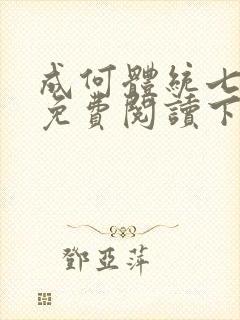 成何體統七
免費閱讀下
鄧亞萍